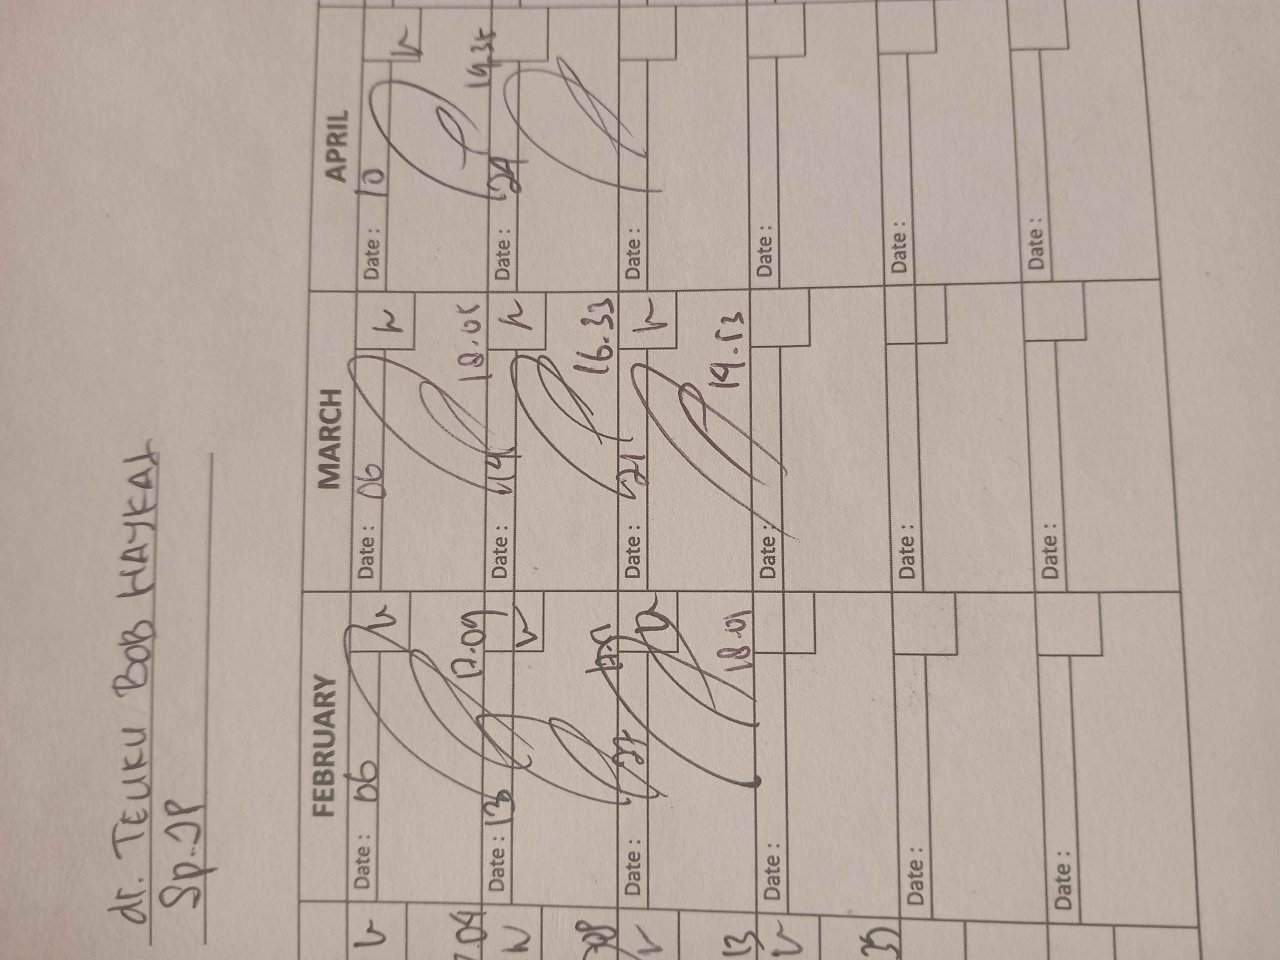 dr. TEUKU BOB HAYKAL
Sp.JP
FEBRUARY MARCH APRIL
Date : 06 Date : 06 Date : 10
17.09 18.05 19.35
Date : 13 Date : 14 Date : 24
16.33
Date : 27 Date : 21 Date :
18.01 19.53
Date : Date : Date :
Date : Date : Date :
Date : Date : Date :